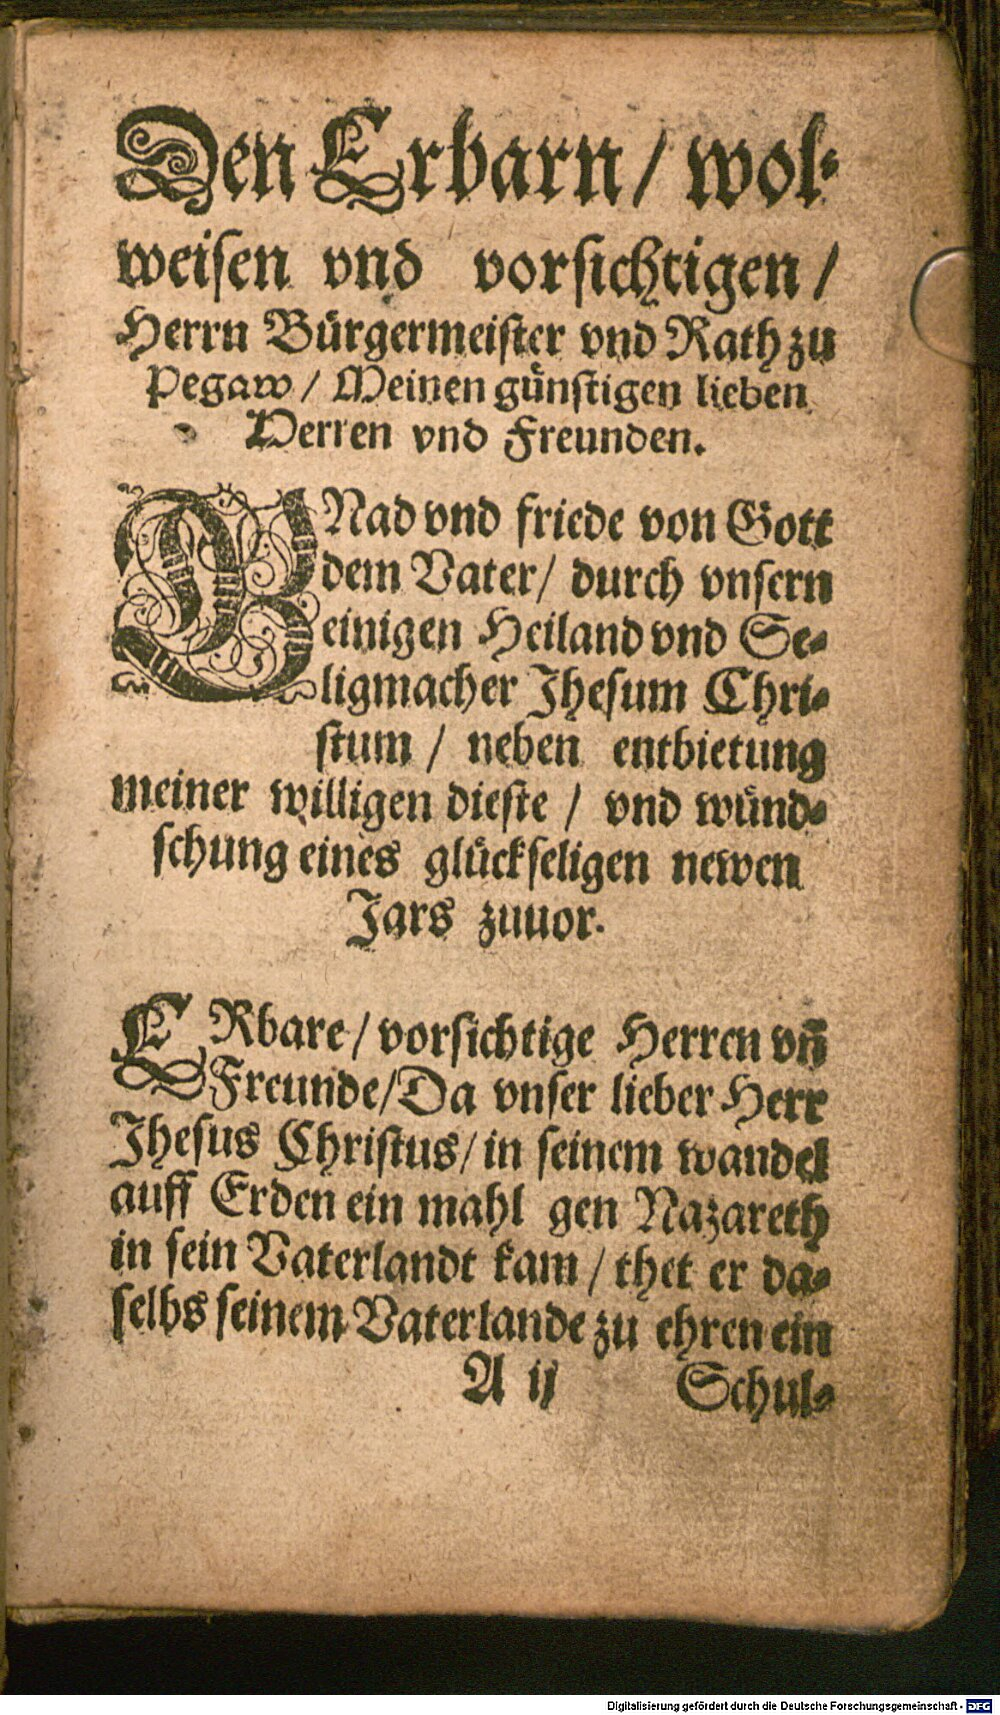 Den Erbarn / wol-
weisen vnd vorsichtigen /
Herrn Bürgermeister vnd Rath zu
Pegaw / Meinen günstigen lieben
Herren vnd Freunden.
GNad vnd friede von Gott
dem Vater / durch vnsern
einigen Heiland vnd Se-
ligmacher Jhesum Chri-
stum / neben entbietung
meiner willigen dieste / vnd wünd-
schung eines glückseligen newen
Jars zuuor.
ERbare / vorsichtige Herren vñ
Freunde / Da vnser lieber Herr
Jhesus Christus / in seinem wandel
auff Erden ein mahl gen Nazareth
in sein Vaterlandt kam / thet er da-
selbs seinem Vaterlande zu ehren ein
A ij Schul-
Digitalisierung gefördert durch die Deutsche Forschungsgemeinschaft - DFG